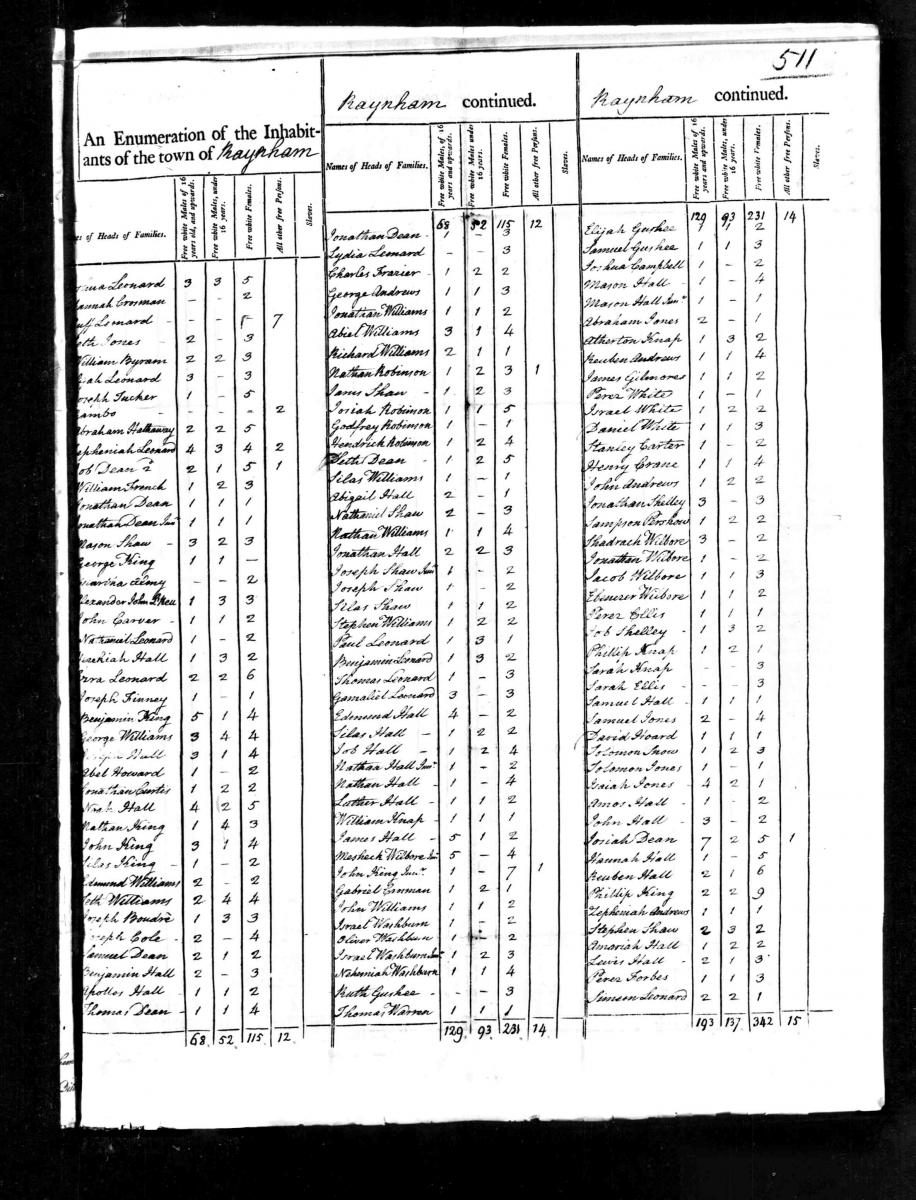 511
An Enumeration of the Inhabit-
ants of the town of Raynham
es of Heads of Families.
Free white Males of 16 years old, and upwards.
Free white Males, under 16 years.
Free white Females.
All other free Persons.
Slaves.
Leonard 3 3 5
annah Crosman - - 2
uff Leonard - - - 7
eth Jones 2 - 3
William Byram 2 2 3
Leonard 3 - 3
Joseph Tucker 1 - 5
ambo - - - 2
Abraham Hathaway 2 2 5
epheniah Leonard 4 3 4 2
ob Dean 2d 2 1 5 1
William French 1 2 3
Jonathan Dean 1 1 1
onathan Dean Junr 1 1 1
Mason Shaw 3 2 3
George King 1 1 -
- - 2
lexander John 1 3 3
John Carver 1 1 2
Nathaniel Leonard 1 - 2
Hall 1 3 2
Leonard 2 2 6
Joseph Finney 1 - 1
Benjamin King 5 1 4
George Williams 3 4 4
Hall 3 1 4
Abel Howard 1 - 2
Jonathan Curtis 1 2 2
Noah Hall 4 2 5
Nathan King 1 4 3
John King 3 1 4
Silas King 1 - 2
Edmund Williams 2 - 2
Seth Williams 2 4 4
Joseph Boudre 1 3 3
Joseph Cole 2 - 4
Samuel Dean 2 1 2
Benjamin Hall 2 - 3
Apollos Hall 1 1 2
Thomas Dean 1 1 4
68 52 115 12
Raynham continued.
Names of Heads of Families.
Free white Males, of 16 years and upwards.
Free white Males under 16 years.
Free white Females.
All other free Persons.
Slaves.
68 52 115 12
Jonathan Dean 1 - 3
Lydia Leonard - - 3
Charles Frazier 1 2 2
George Andrews 1 1 3
Jonathan Williams 1 1 2
Abiel Williams 3 1 4
Richard Williams 2 1 1
Nathan Robinson 1 2 3 1
Shaw 1 2 3
Josiah Robinson 1 1 5
Godfrey Robinson 1 - 1
Hendrick Robinson 1 2 4
Seth Dean 1 2 5
Silas Williams 1 - 1
Abigail Hall 2 - 1
Nathaniel Shaw 2 - 3
Nathan Williams 1 1 4
Jonathan Hall 2 2 3
Joseph Shaw Junr 1 - 2
Joseph Shaw 1 - 2
Silas Shaw 1 1 2
Stephen Williams 1 2 2
Paul Leonard 1 3 1
Benjamin Leonard 1 3 2
Thomas Leonard 1 - 3
Gamaliel Leonard 3 - 3
Edmund Hall 4 - 2
Silas Hall 1 2 2
Job Hall 1 2 4
Nathan Hall Junr 1 - 2
Nathan Hall 1 - 4
Luther Hall 1 1 2
William Knap 1 1 1
James Hall 5 1 2
Mesheck Wilbore Junr 5 - 4
John King Junr 1 - 7 1
Gabriel 1 2 1
John Williams 1 1 2
Israel Washburn 1 - 2
Oliver Washburn 1 - 2
Israel Washburn Junr 1 2 3
Nehemiah Washburn 1 1 4
Ruth Gushee - - 3
Thomas Warren 1 1 1
129 93 231 14
Raynham continued.
Names of Heads of Families.
Free white Males, of 16 years and upwards.
Free white Males, under 16 years.
Free white Females.
All other free Persons.
Slaves.
129 93 231 14
Elijah Gushee 1 1 2
Samuel Gushee 1 1 3
Joshua Campbell 1 - 2
Mason Hall 1 - 4
Mason Hall Junr 1 - 1
Abraham Jones 2 - 1
Atherton Knap 1 3 2
Reuben Andrews 1 1 4
James Gilmores 1 1 2
Perez White 1 - 1
Israel White 1 2 2
Daniel White 1 1 3
Stanley Carter 1 - 2
Henry Crane 1 1 4
John Andrews 1 2 2
Jonathan Shelley 3 - 3
Sampson 1 2 2
Shadrach Wilbore 3 - 2
Jonathan Wilbore 1 - 2
Jacob Wilbore 1 1 3
Ebenezer Wilbore 1 1 2
Perez Ellis 1 1 1
Job Shelley 1 3 2
Phillip Knap 1 2 1
Sarah Knap - - 3
Sarah Ellis - - 3
Samuel Hall 1 1 1
Samuel Jones 2 - 4
David Hoard 1 1 1
Solomon Snow 1 2 3
Solomon Jones 1 - 1
Isaiah Jones 4 2 1
Amos Hall 1 - 2
John Hall 3 - 2
Josiah Dean 7 2 5 1
Hannah Hall 1 - 5
Reuben Hall 2 1 6
Phillip King 2 2 9
Zepheniah Andrews 1 1 1
Stephen Shaw 2 3 2
Amariah Hall 1 2 2
Lewis Hall 2 1 3
Perez Forbes 1 1 3
Simeon Leonard 2 2 1
193 137 342 15